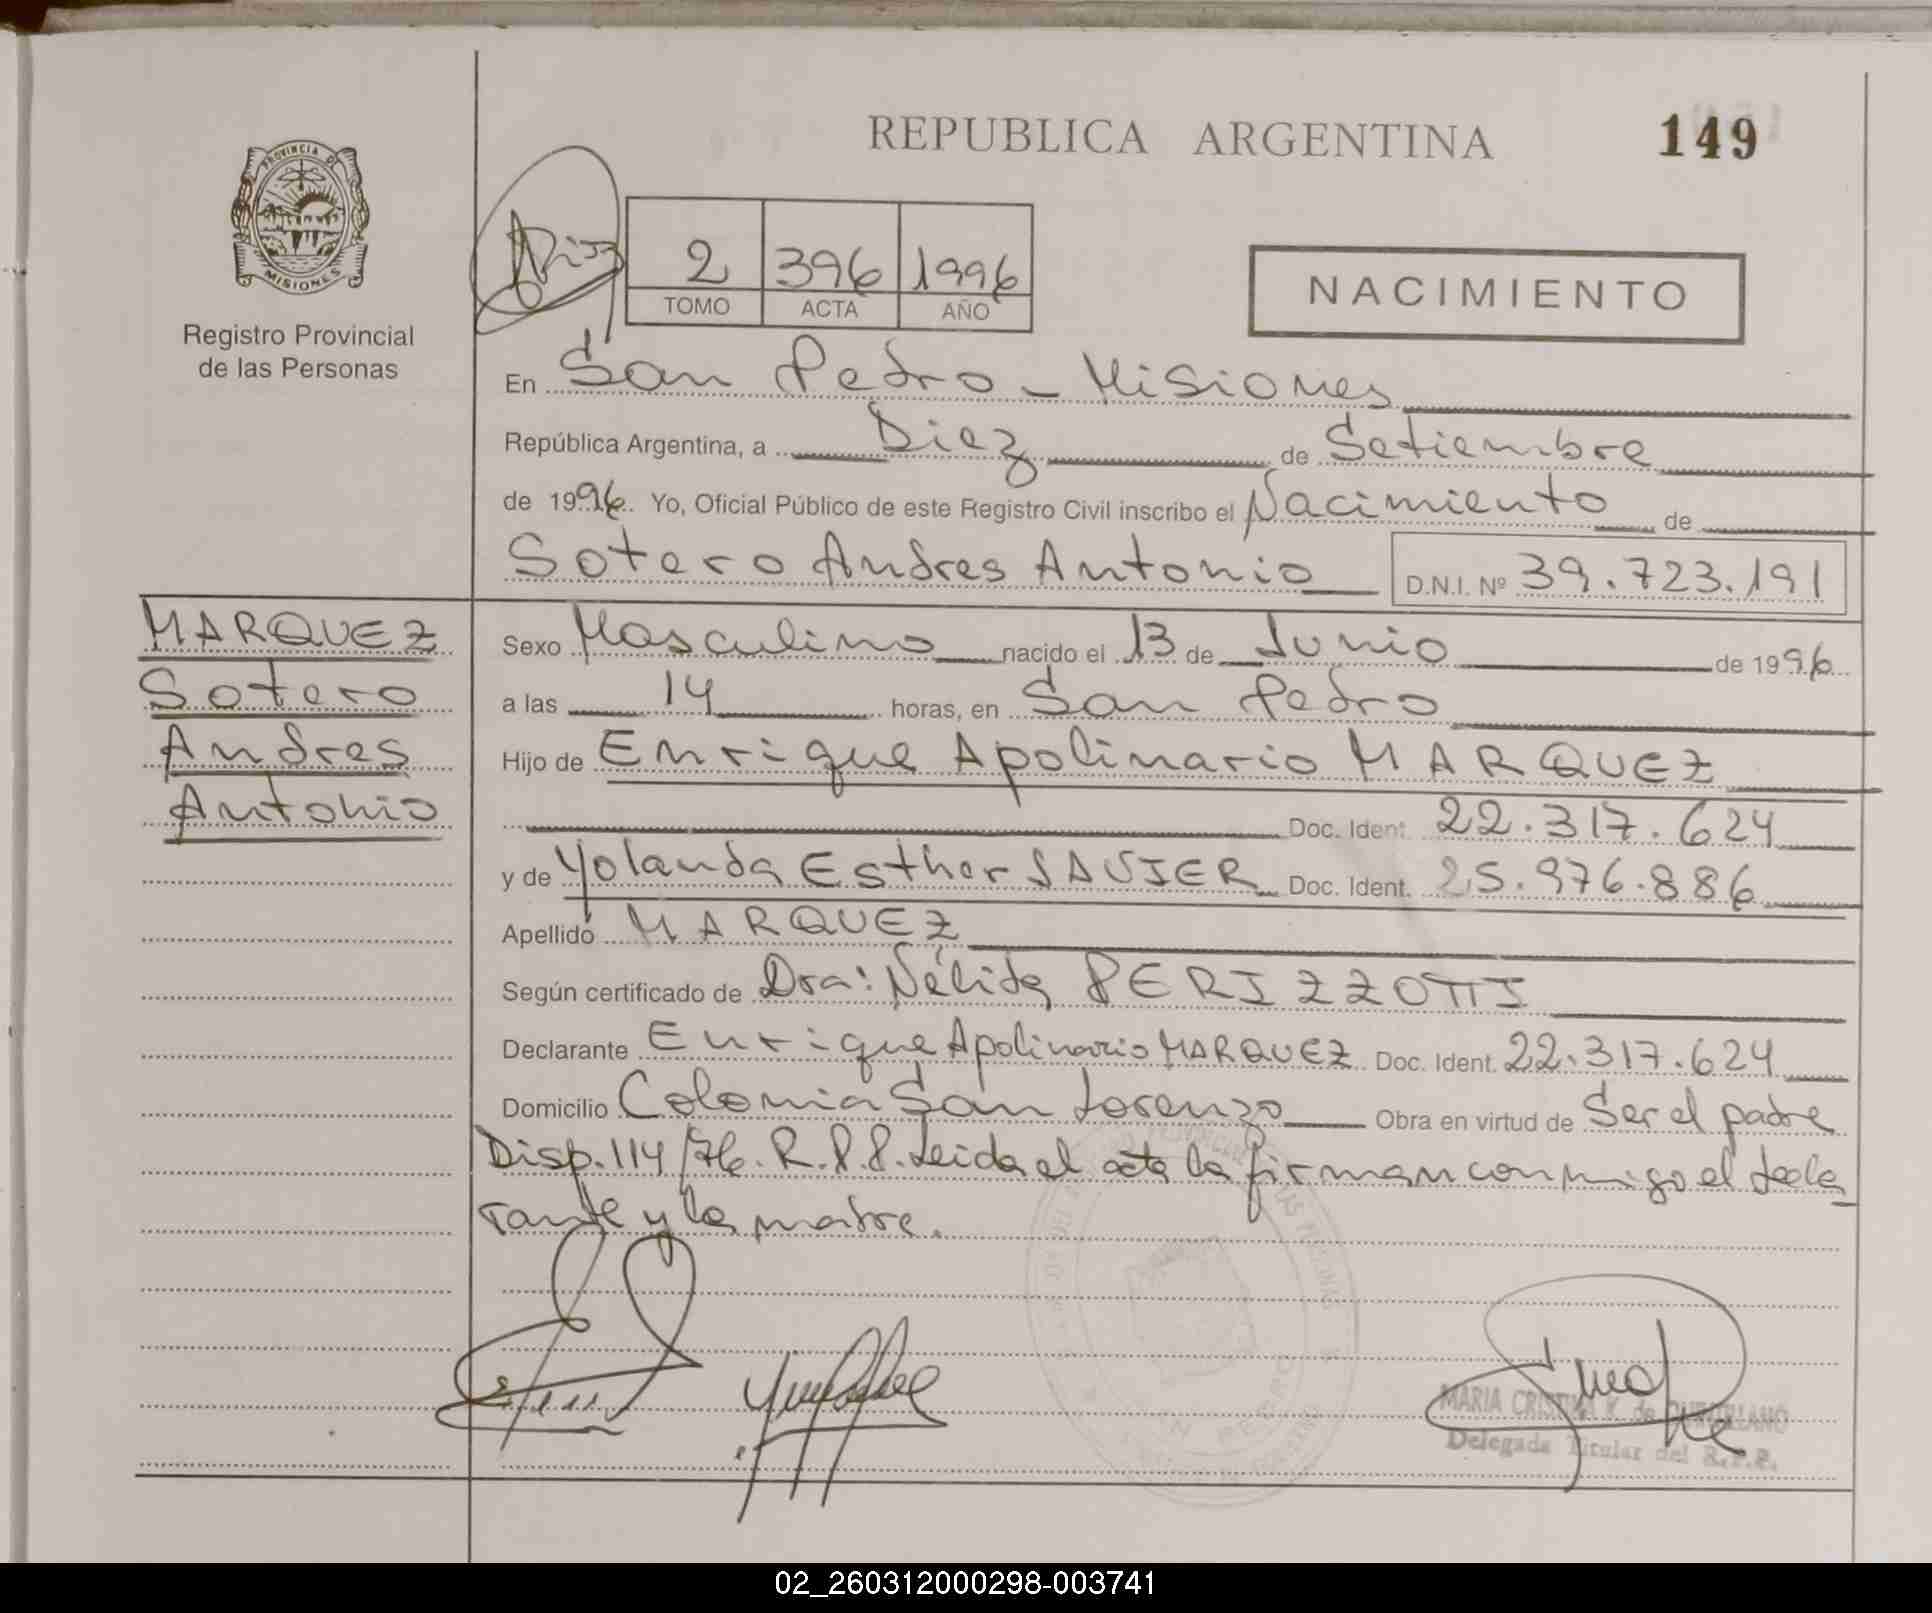 REPUBLICA ARGENTINA
149
PROVINCIA DE
MISIONES
Registro Provincial
de las Personas
2 396 1996
TOMO ACTA AÑO
NACIMIENTO
En San Pedro - Misiones
República Argentina, a Diez de Setiembre
de 1996. Yo, Oficial Público de este Registro Civil inscribo el Nacimiento de
Sotero Andres Antonio D.N.I. Nº 39.723.191
MARQUEZ
Sotero
Andres
Antonio
Sexo Masculino nacido el 13 de Junio de 1996
a las 14 horas, en San Pedro
Hijo de Enrique Apolinario MARQUEZ
Doc. Ident. 22.317.624
y de Yolanda Esther Doc. Ident. 25.976.886
Apellido MARQUEZ
Según certificado de Dra: Nélida PERIZZOTTI
Declarante Enrique Apolinario MARQUEZ Doc. Ident. 22.317.624
Domicilio Colonia San Lorenzo Obra en virtud de Ser el padre
Disp. 114/76. R.P.P. Leida el acta la firman conmigo el decla
rante y la madre.
MARIA CRISTINA K. de
Delegada Titular del R.P.P.
02_260312000298-003741